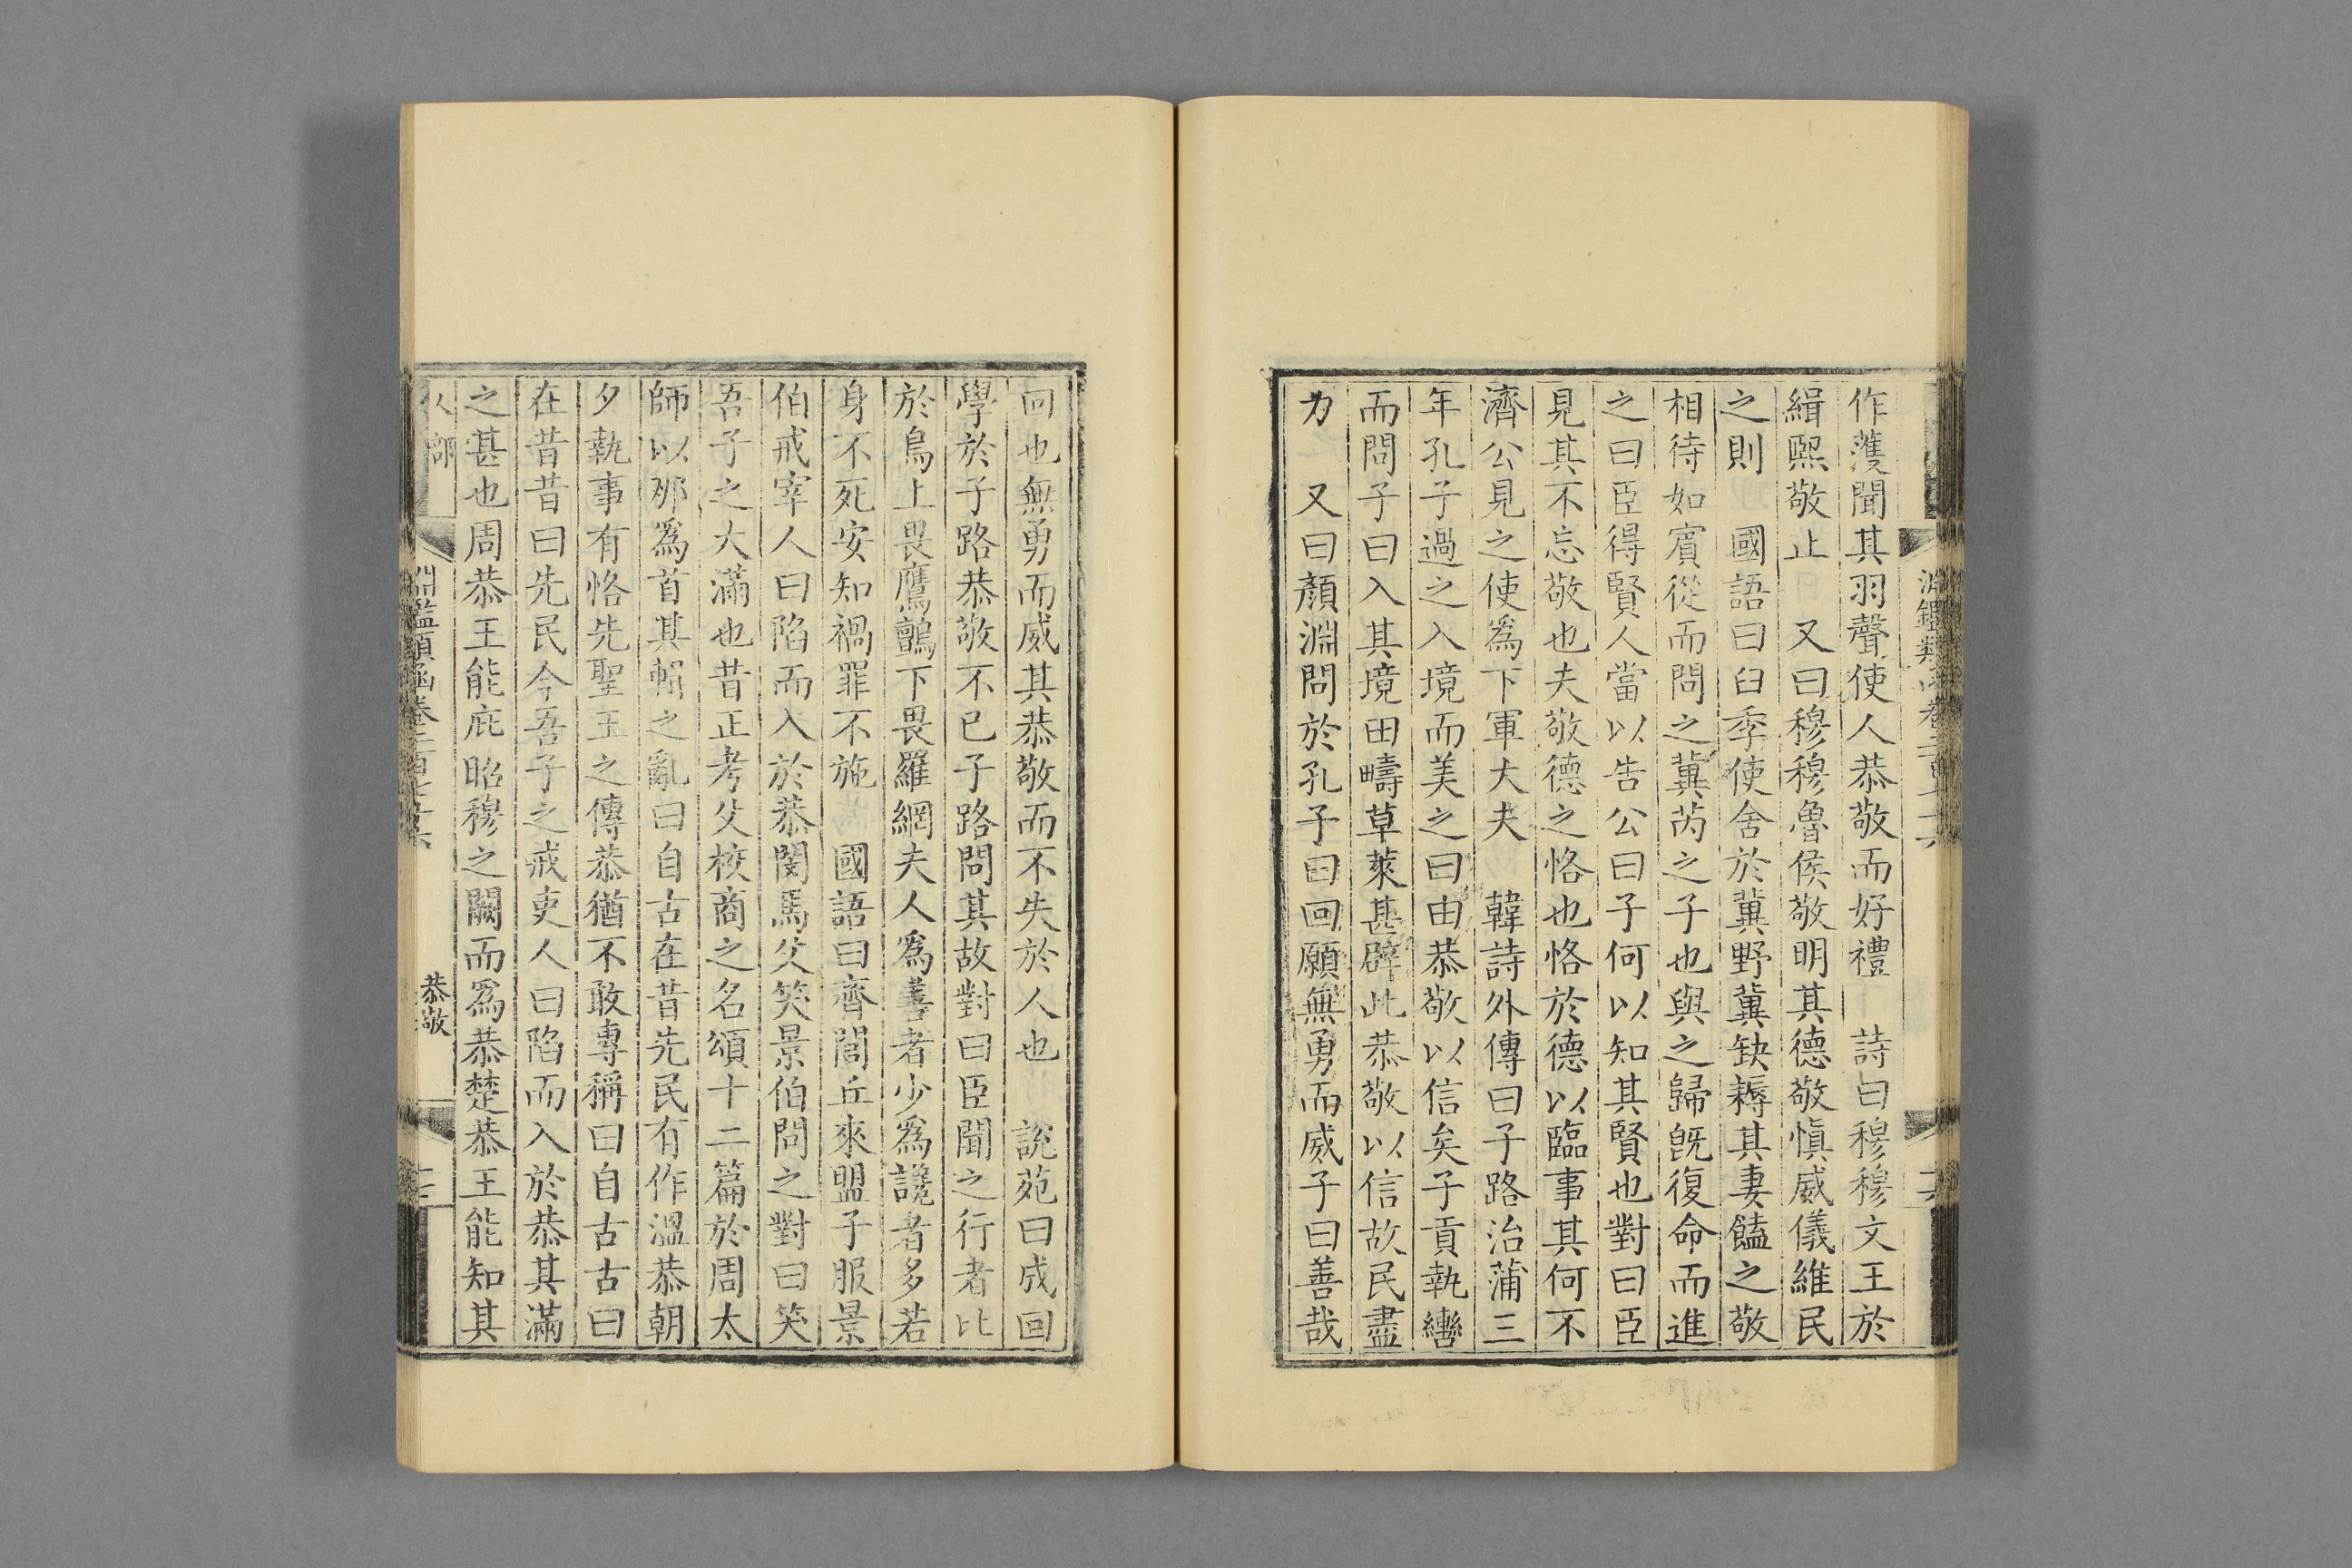 作蒦聞其羽聲使人恭敬而好禮　詩曰穆穆文王於
緝熙敬止　又曰穆穆魯侯敬明其德敬愼威儀維民
之則　國語曰臼季使舍於冀野冀缺耨其妻饁之敬
相待如賓從而問之冀芮之子也與之歸旣復命而進
之曰臣得賢人當以告公曰子何以知其賢也對曰臣
見其不忘敬也夫敬德之恪也恪於德以臨事其何不
濟公見之使爲下軍大夫　韓詩外傳曰子路治蒲三
年孔子過之入境而美之曰由恭敬以信矣子貢執轡
而問子曰入其境田疇草萊甚辟此恭敬以信故民盡
力　又曰顏淵問於孔子曰回願無勇而威子曰善哉
回也無勇而威其恭敬而不失於人也　說苑曰成回
學於子路恭敬不已子路問其故對曰臣聞之行者比
於鳥上畏鷹鸇下畏羅網夫人爲善者少爲讒者多若
身不死安知禍罪不施　國語曰齊閭丘來盟子服景
伯戒宰人曰陷而入於恭閔馬父笑景伯問之對曰笑
吾子之大滿也昔正考父校商之名頌十二篇於周太
師以那爲首其輯之亂曰自古在昔先民有作溫恭朝
夕執事有恪先聖王之傳恭猶不敢專稱曰自古古曰
在昔昔曰先民今吾子之戒吏人曰陷而入於恭其滿
之甚也周恭王能庇昭穆之闕而爲恭楚恭王能知其
人部　淵鑑類函卷二百七十六　恭敬　十七